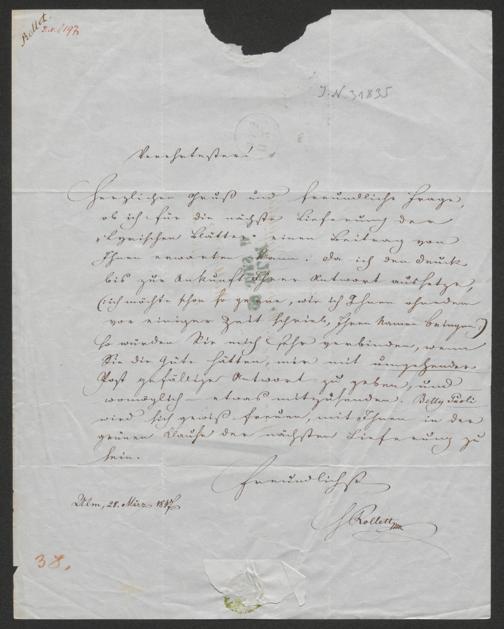 Rollet.
J.N. 31835
Verehrtester!
Herzlichen Gruß und freundliche Frage,
ob ich für die nächste Lieferung der
„Lyrischen Blätter“ einen Beitrag von
Ihnen erwarten kann. Da ich den Druck
bis zur Ankunft Ihrer Antwort aussetze,
(ich möchte schon so gerne, wie ich Ihnen ohnedem
vor einiger Zeit schrieb, Ihren Namen bringen)
so würden Sie mich sehr verbinden, wenn
Sie die Güte hätten, mir mit umgehender
Post gefällige Antwort zu geben, und
womöglich etwas mitzusenden. Betty Paoli
wird sich gewiß freuen, mit Ihnen in der
grünen Klause der nächsten Lieferung zu
sein.
Freundlichst
Ulm, 28. März 1847
Rollett
38.